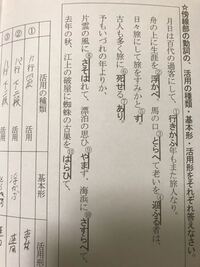 ☆傍線部の動詞の、活用の種類・基本形・活用形をそれぞれ答えなさい。
月日は百代の過客にして①行きかふ年もまた旅人なり。
舟の上に生涯を②浮かべ、馬の口③とらへて老いを④迎ふる者は、
日々旅にして旅をすみかと⑤す。
古人も多く旅に⑥死せる⑦あり。
予もいづれの年よりか、
片雲の風に⑧さそはれて、漂泊の思ひ⑨やまず。海浜に⑩さすらへて、
去年の秋、江上の破屋に蜘蛛の古巣を⑪はらひて、
活用の種類 基本形 活用形
① 活用
② 活用
③